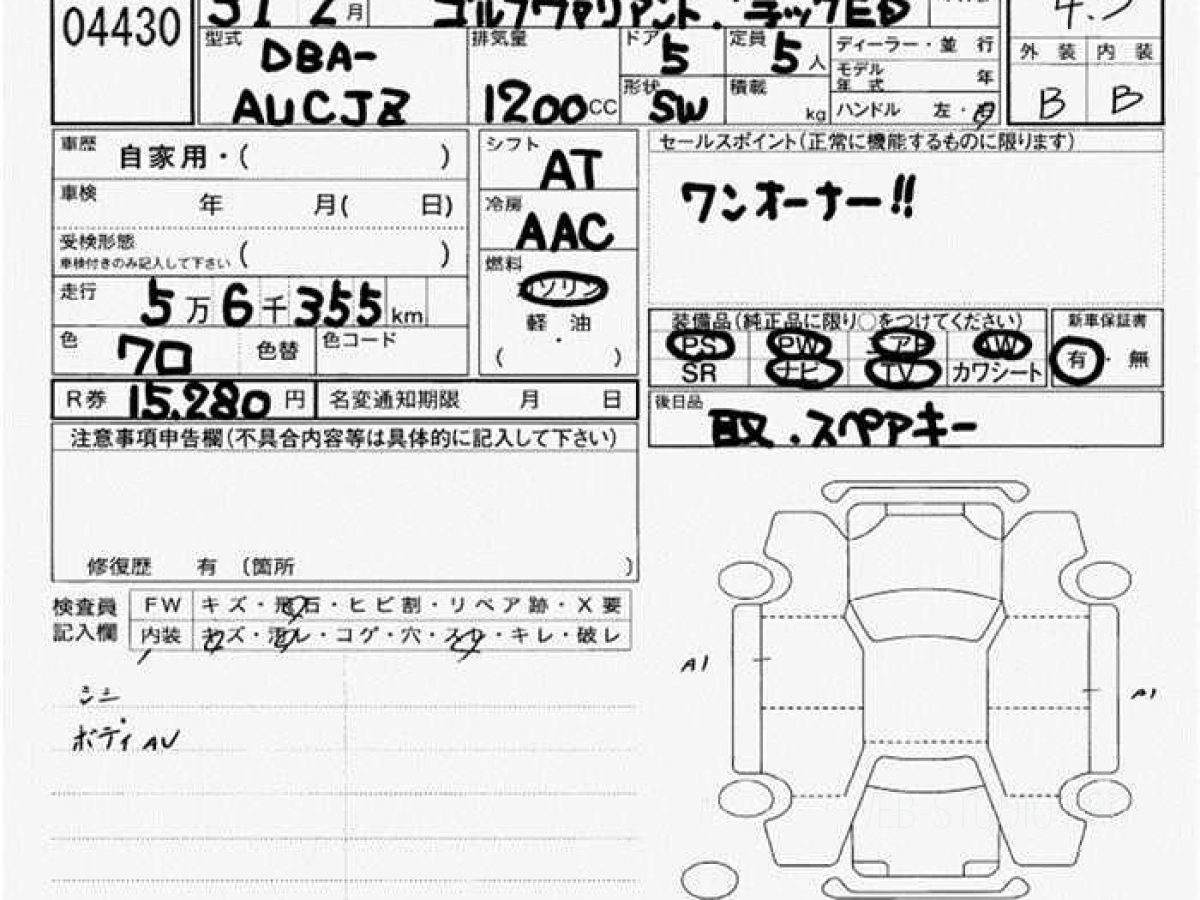 04430
31 2月
ゴルフヴァリアント. テックED
4.5
型式
DBA-
AUCJZ
排気量
1200CC
ドア
5
定員
5人
形状
SW
積載
kg
ディーラー・並行
モデル年式
年
ハンドル 左・
外装 内装
B B
車歴
自家用・( )
車検
年 月( 日)
受検形態
車検付きのみ記入して下さい ( )
走行
5万6千355km
色
クロ
色替
色コード
シフト
AT
冷房
AAC
燃料
ガソリン
軽・油
( )
セールスポイント(正常に機能するものに限ります)
ワンオーナー!!
装備品(純正品に限り○をつけてください)
PS PW エアB AW
SR ナビ TV カワシート
新車保証書
有・無
R券 15,280円
名変通知期限 月 日
後日品
取.スペアキー
注意事項申告欄(不具合内容等は具体的に記入して下さい)
修復歴 有 (箇所 )
検査員記入欄
FW キズ・飛石・ヒビ割・リペア跡・X要
内装 キズ・汚レ・コゲ・穴・スレ・キレ・破レ
ボディAV
A1
A1